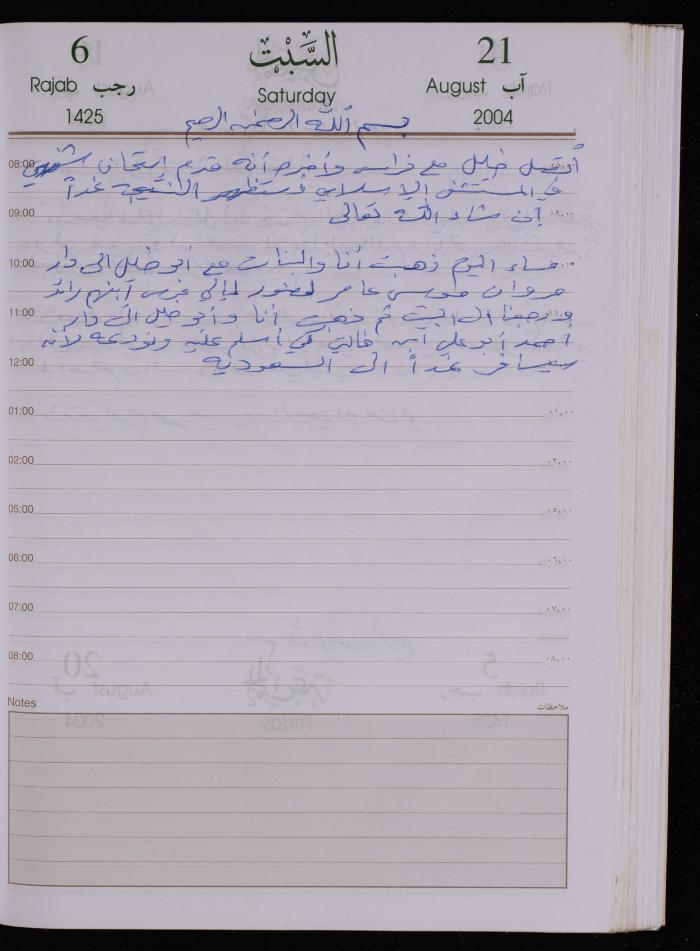 6 السَّبْت 21
Rajab رجب Saturday August آب
1425 2004
بسم الله الرحمن الرحيم
08:00 أتصل خليل مع فراس وأخبره أنه قدم إمتحان شفهي
في المستشفى الإسلامي وستظهر النتيجة غداً
09:00 إن شاء الله تعالى
10:00 مساء اليوم ذهبت أنا والبنات مع أبو خليل الى دار
مروان موسى عامر لحضور ليالي عرس أبنهم رائد
11:00 ورجعنا الى البيت ثم ذهبت أنا وأبو خليل الى دار
أحمد أبو علي ابن خالتي كي أسلم عليه ونودعه لأنه
12:00 سيسافر غداً الى السعودية
01:00 ٠١,٠٠
02:00 ٠٢,٠٠
05:00 ٠٥,٠٠
06:00 ٠٦,٠٠
07:00 ٠٧,٠٠
08:00 ٠٨,٠٠
Notes ملاحظات